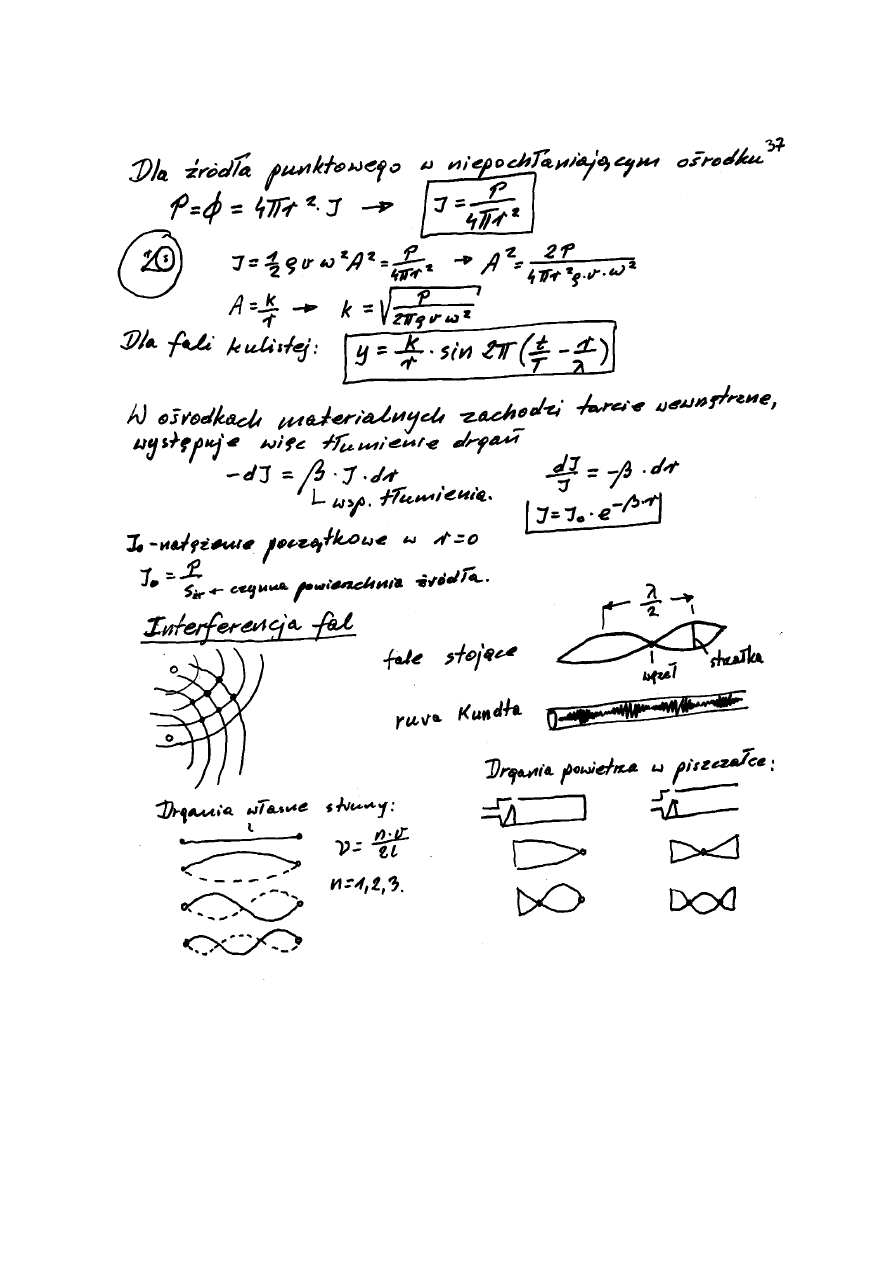 37
Dla źródła punktowego w niepochłaniającym ośrodku
P=ϕ = 4πr²·J → J = P/4πr²
J = 1/2 ρ v ω² A² = P/4πr² → A² = 2P/4πr²ρ·v·ω²
A = k/r → k = √(P/2πρvω²)
Dla fali kulistej: y = k/r · sin 2π (t/T − r/λ)
W ośrodkach materialnych zachodzi tarcie wewnętrzne,
występuje więc tłumienie drgań
−dJ = β·J·dr dJ/J = −β·dr
wsp. tłumienia. J = J₀·e^(−β·r)
J₀ - natężenie początkowe w r=0
J₀ = P/Sźr ← czynna powierzchnia źródła.
Interferencja fal
λ/2
fale stojące
węzeł strzałka
rura Kundta
Drgania powietrza w piszczałce:
Drgania własne struny:
l
ν = n·v/2l
n=1,2,3.